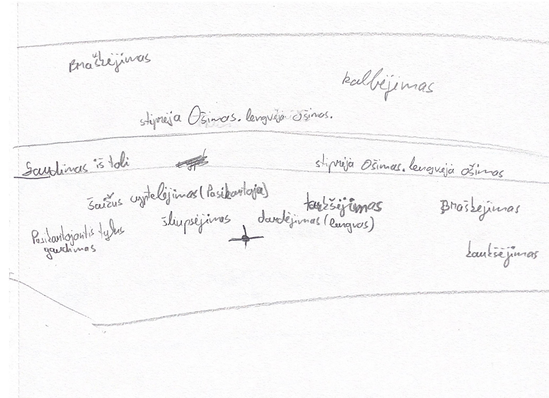 Braškėjimas
kalbėjimas
stiprėja Ošimas. lengvėja ošimas.
Gaudimas iš toli
stiprėja Ošimas. lengvėja ošimas
šaižus cyptelėjimas (Pasikartoja)
tarkšėjimas
Braškėjimas
Pasikartojantis tylus
gaudimas
šliupsėjimas
dardėjimas (lengvas)
kauksėjimas